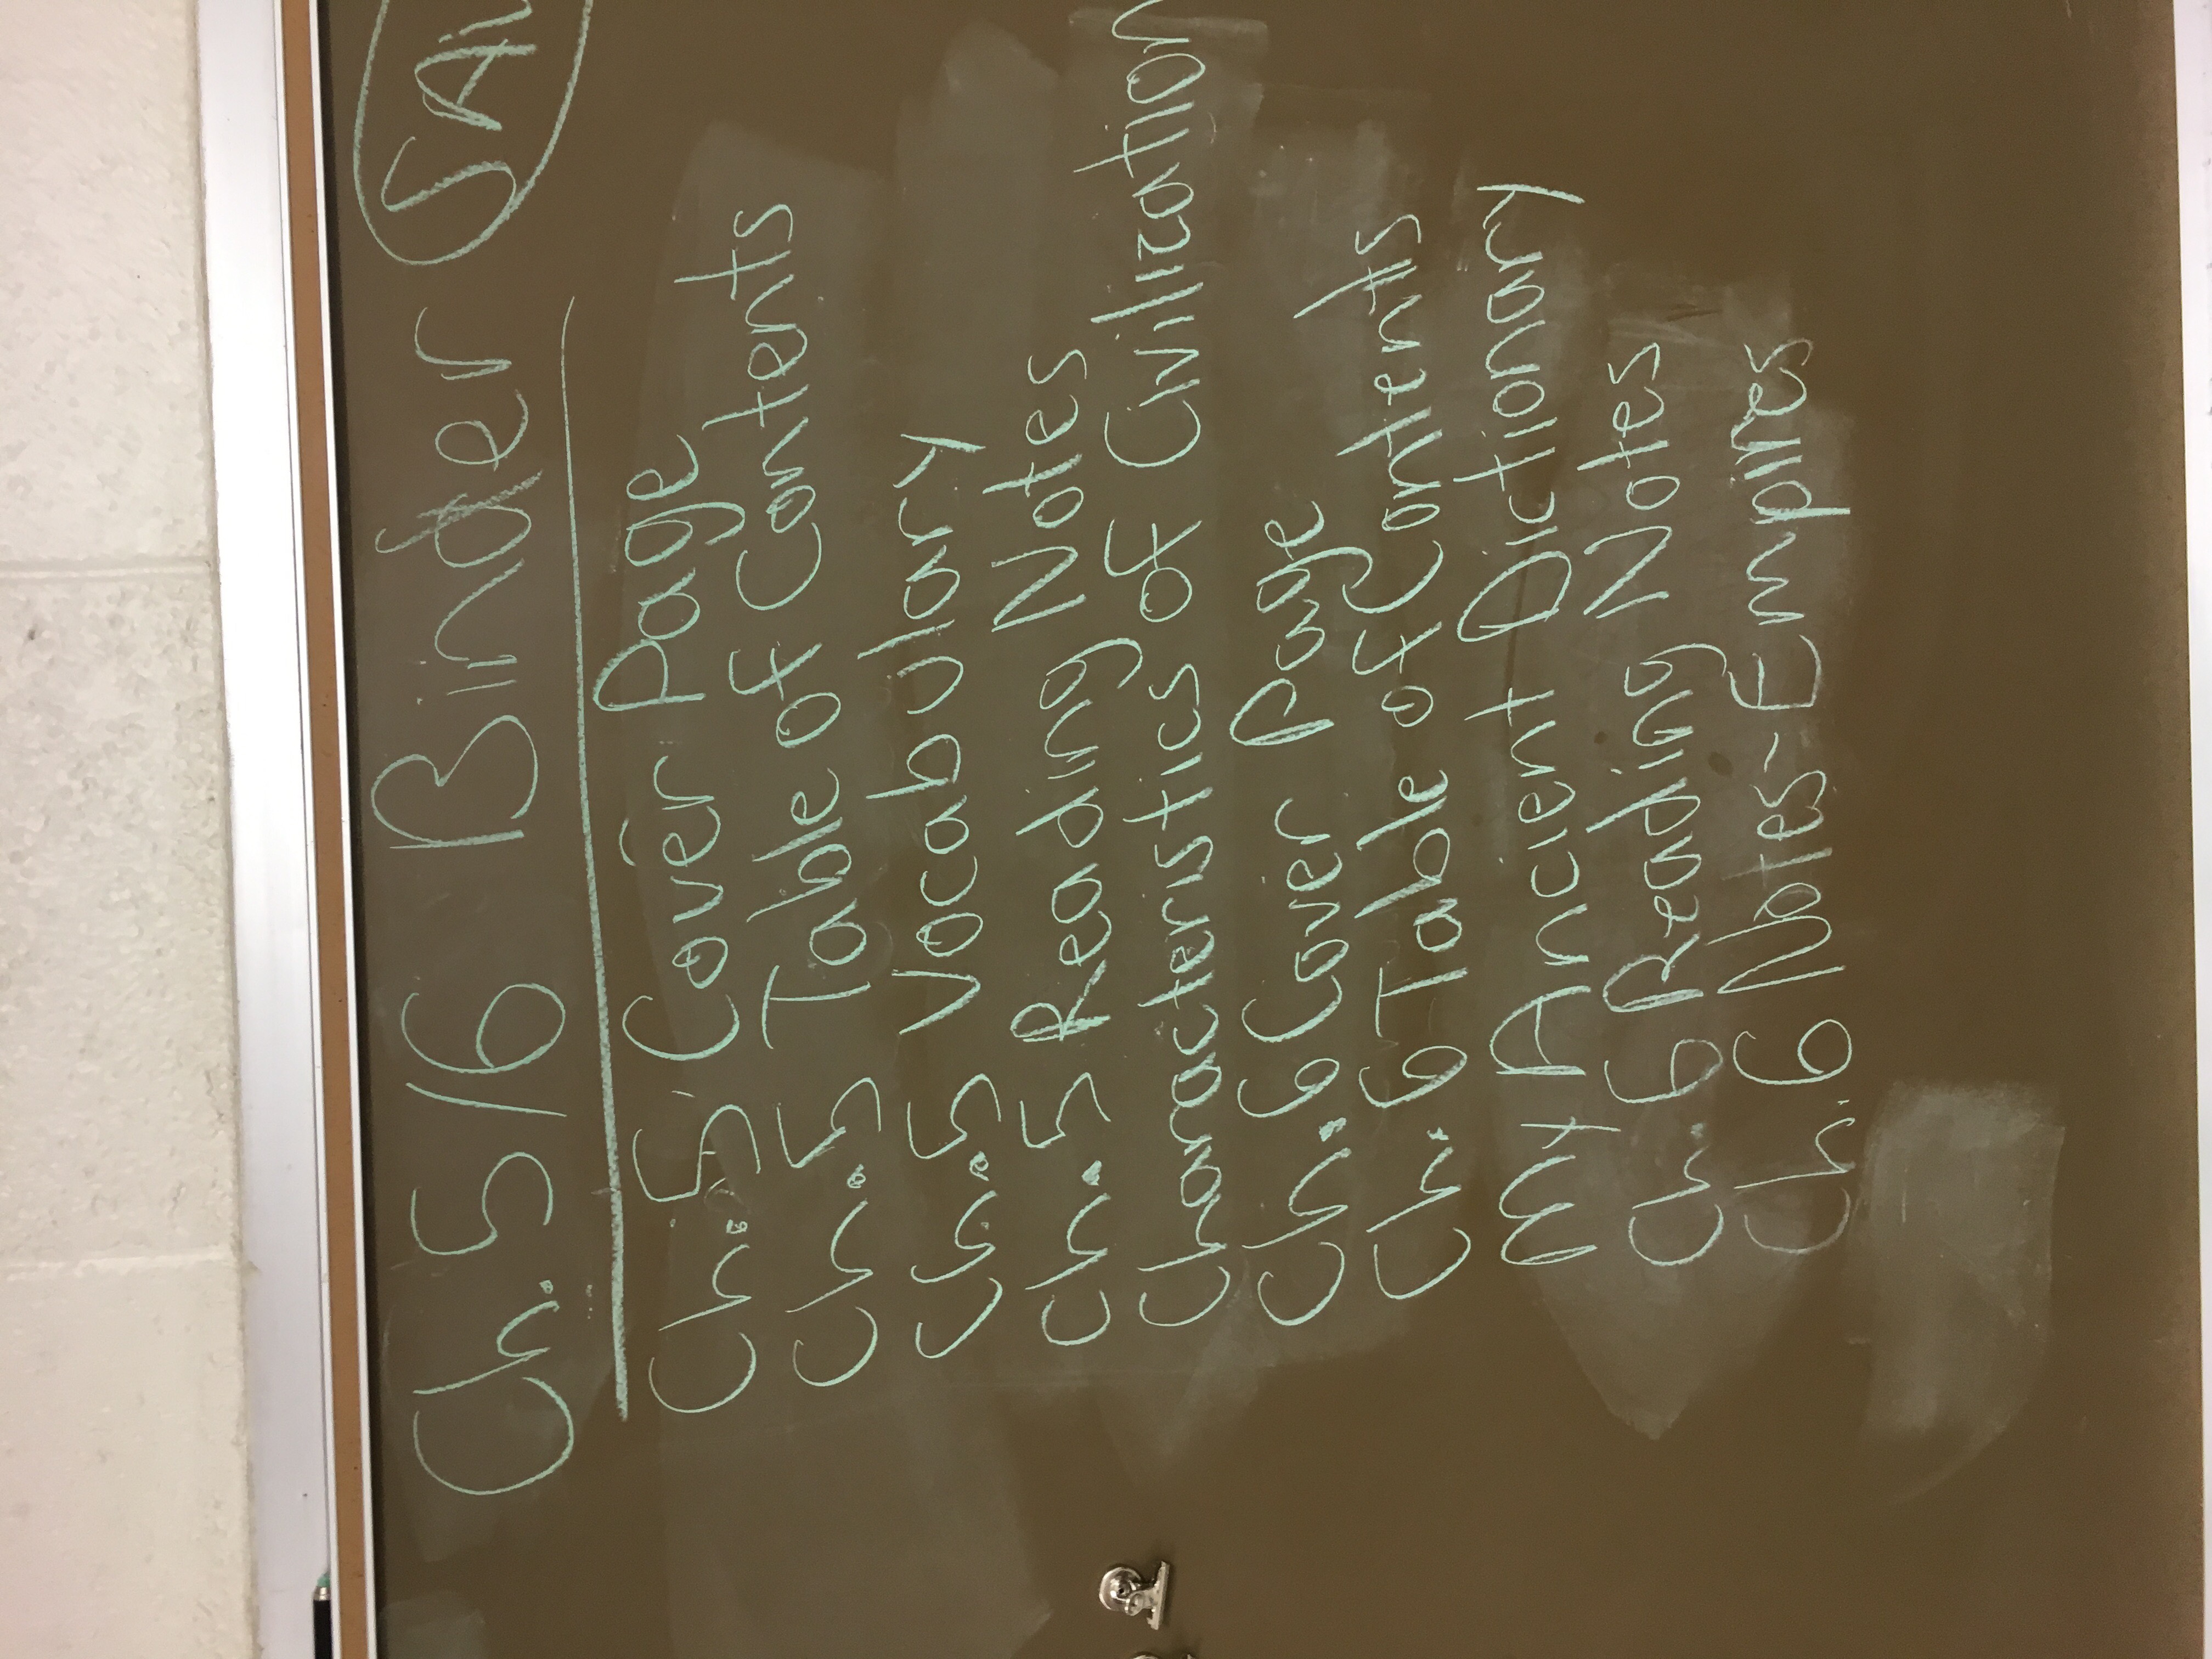 Ch. 5/6 Binder
Ch. 5 Cover Page
Ch. 5 Table of Contents
Ch. 5 Vocabulary
Ch. 5 Reading Notes
Characteristics of Civilization
Ch. 6 Cover Page
Ch. 6 Table of Contents
My Ancient Dictionary
Ch. 6 Reading Notes
Ch. 6 Notes-Empires